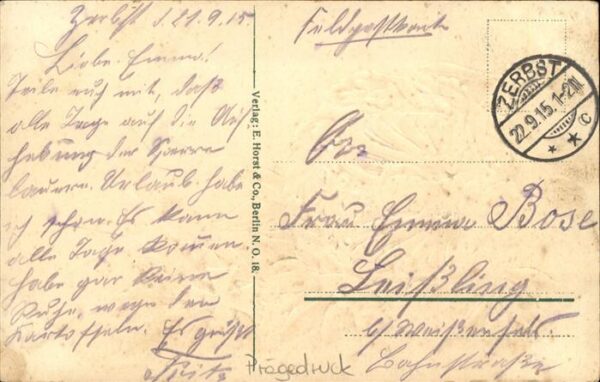 Zerbst d. 21.9.15
Liebe Emma!
Teile euch mit, daß
alle Tage auf die Auf
hebung der Sperre
lauern. Urlaub habe
ich schon. Es kann
alle Tage kommen.
habe gar keine
Ruhe, wegen den
Kartoffeln. Es grüßt
Fritz
Verlag: E. Horst & Co., Berlin N.O. 18.
Feldpostkarte
ZERBST
9.15.1-2N
* * c
Frau Emma Bose
Leißling
b/ Weißenfels.
Bahnstraße
Prägedruck